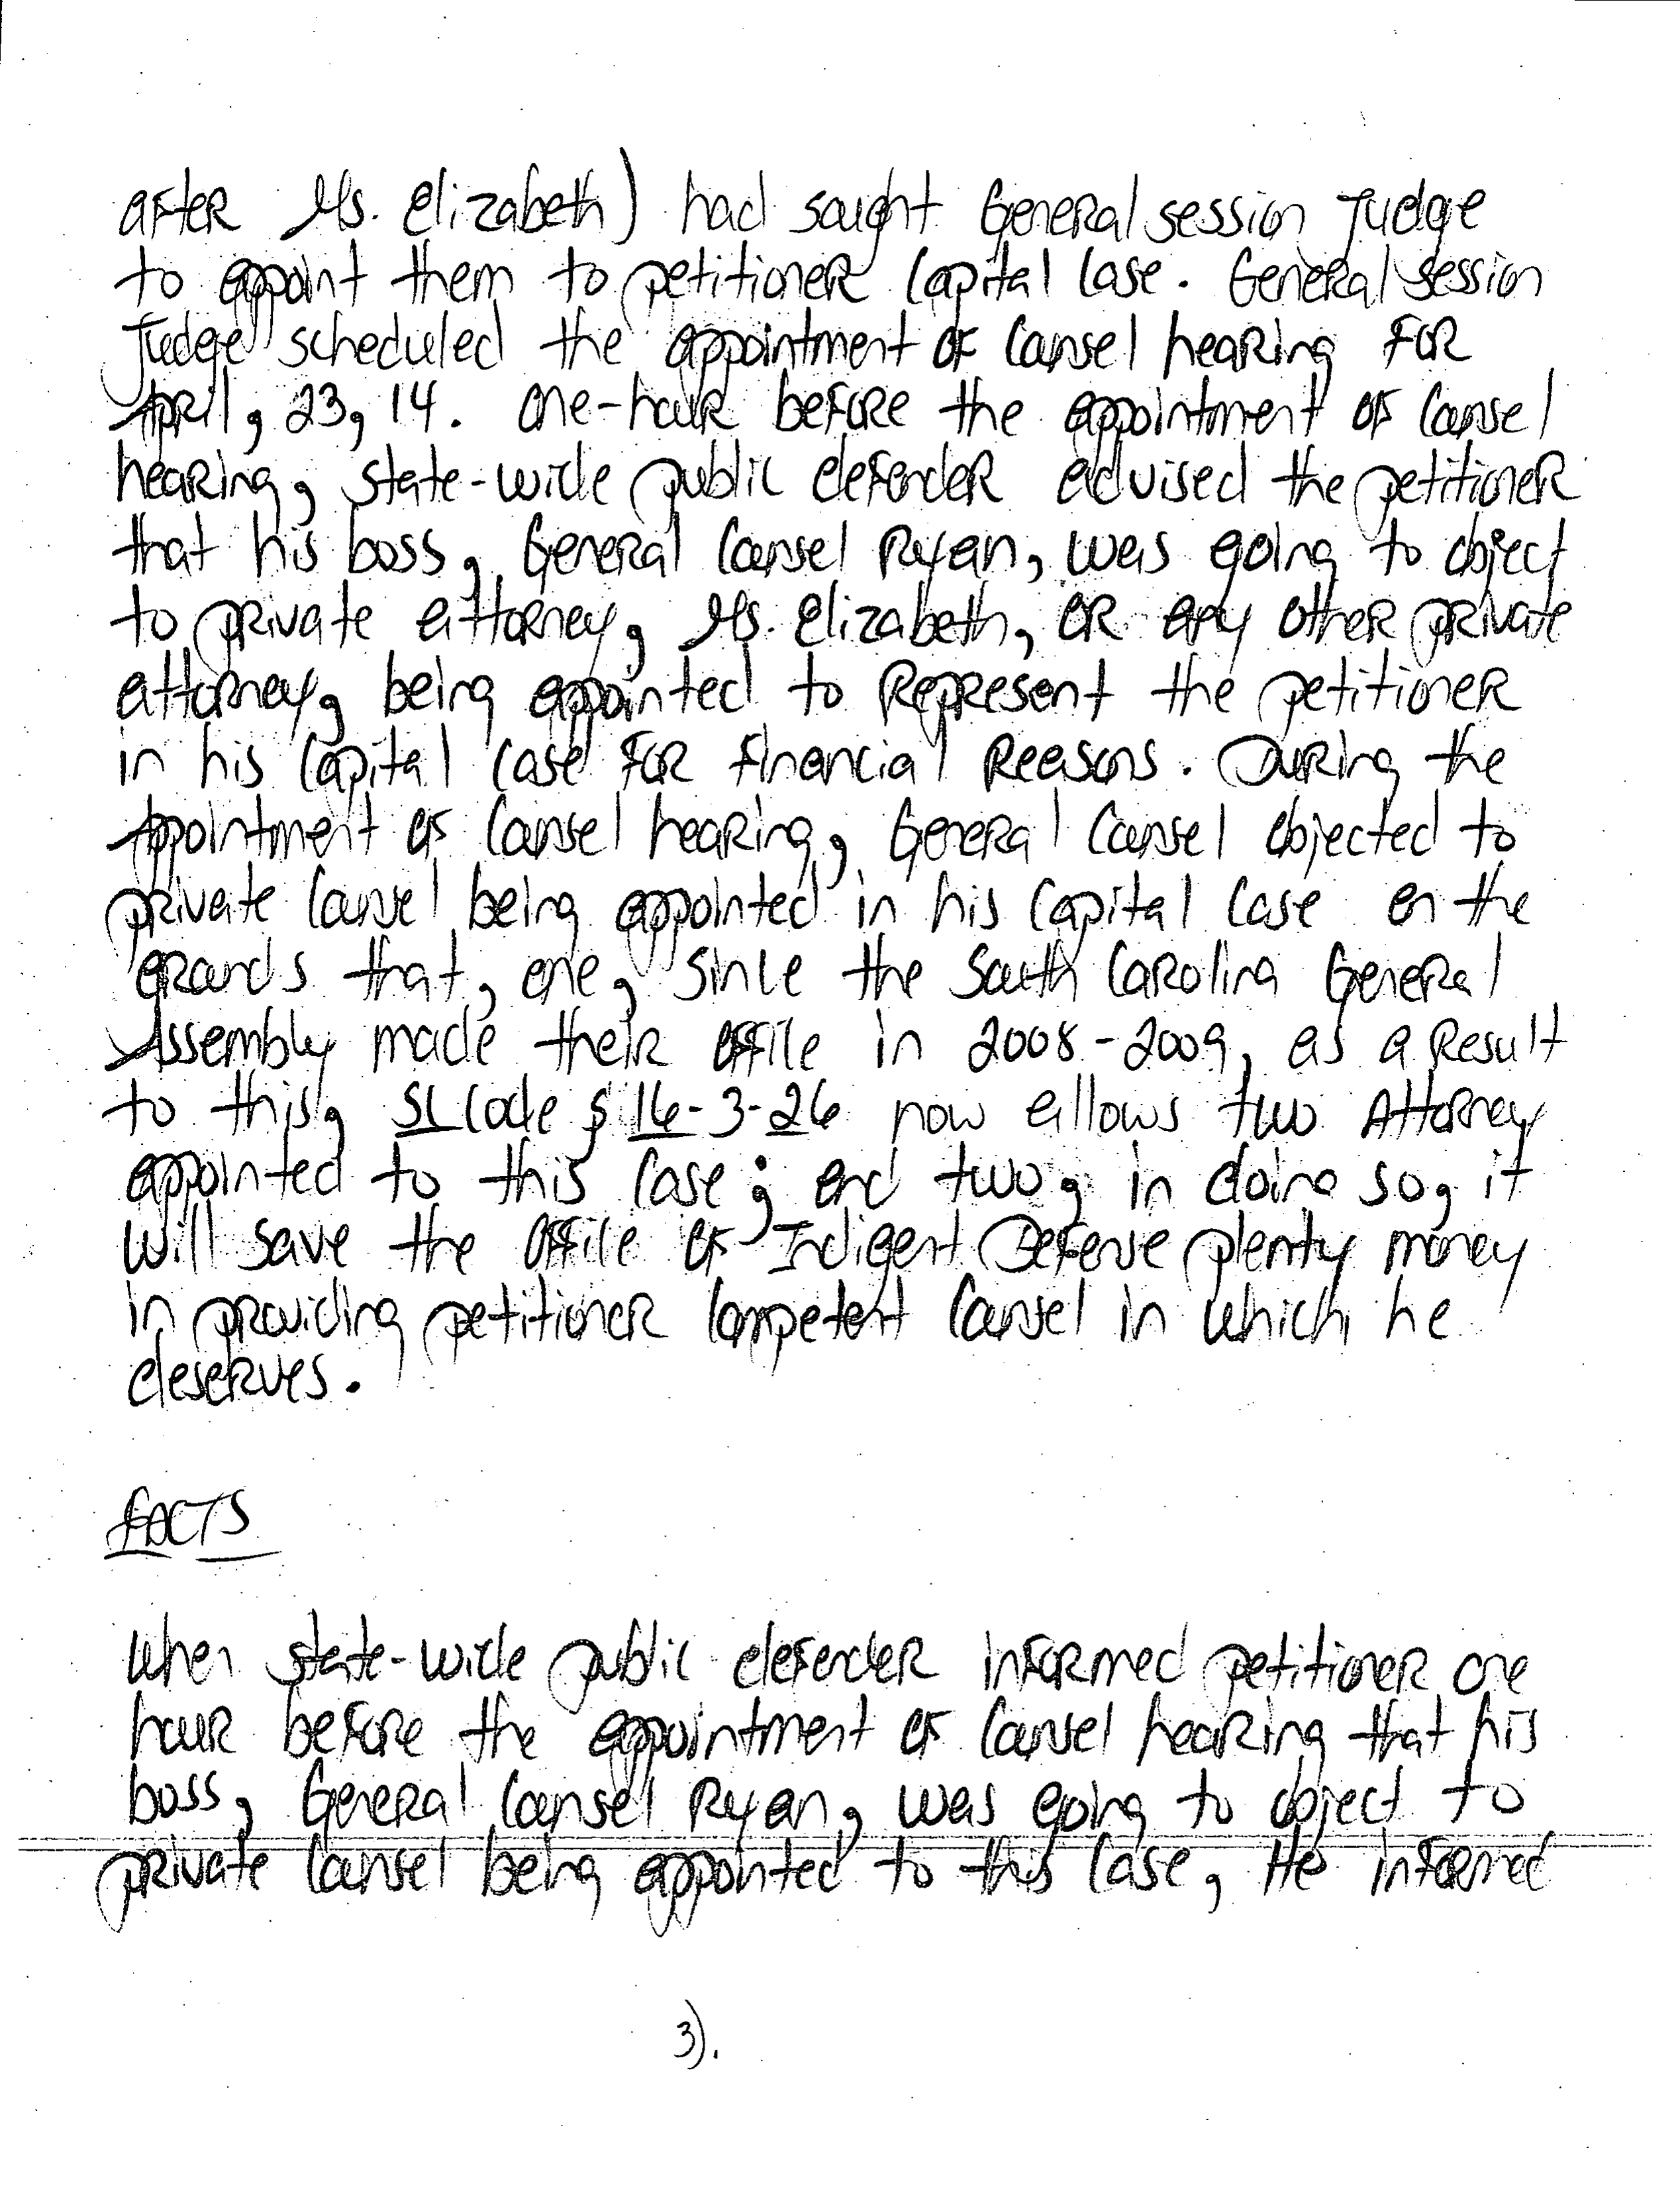 after Ms. Elizabeth) had sought General session Judge
to appoint them to petitioner Capital Case. General session
Judge scheduled the appointment of Counsel hearing for
April, 23, 14. One-hour before the appointment of Counsel
hearing, state-wide public defender advised the petitioner
that his boss, General Counsel Ryan, was going to object
to private attorney, Ms. Elizabeth, or any other private
attorney, being appointed to Represent the petitioner
in his Capital Case for financial Reasons. During the
Appointment of Counsel hearing, General Counsel objected to
private Counsel being appointed in his Capital Case on the
grounds that, one, since the South Carolina General
Assembly made their office in 2008-2009, as a Result
to this, SC Code § 16-3-26 now allows two Attorney
appointed to this Case; and two, in doing so, it
will save the Office of Indigent Defense plenty money
in providing petitioner Competent Counsel in which he
deserves.
FACTS
When state-wide public defender informed petitioner one
hour before the appointment of Counsel hearing that his
boss, General Counsel Ryan, was going to object to
private Counsel being appointed to this Case, He informed
3).